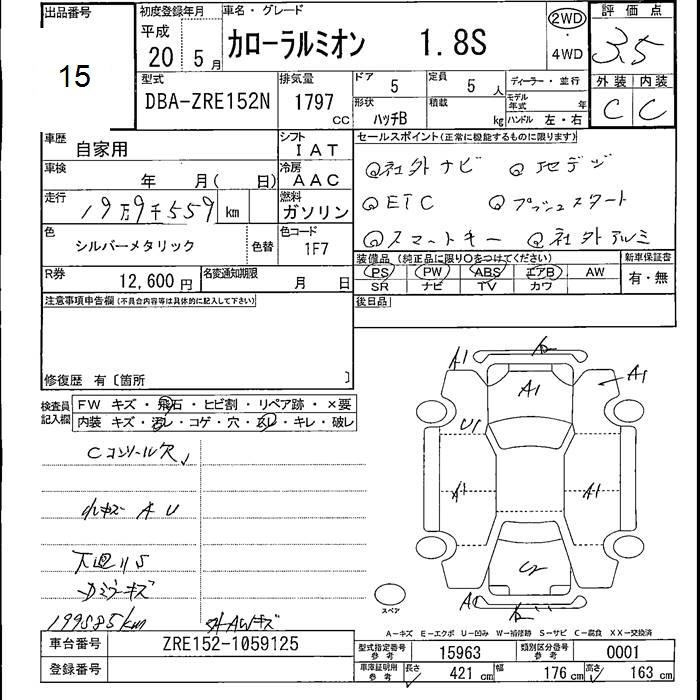 出品番号
15
初度登録年月
平成
20 5月
車名・グレード
カローラルミオン 1.8S
2WD
・
4WD
評価点
3.5
外装 内装
C C
型式
DBA-ZRE152N
排気量
1797 cc
ドア
5
定員
5 人
形状
ハッチB
積載
kg
ディーラー・並行
モデル年式 年
ハンドル 左・右
車歴
自家用
シフト
IAT
車検
年 月( 日)
冷房
AAC
走行
19万9千559 km
燃料
ガソリン
色
シルバーメタリック
色替
色コード
1F7
R券
12,600円
名変通知期限
月 日
セールスポイント(正常に機能するものに限ります)
社外ナビ 地デジ
ETC プッシュスタート
スマートキー 社外アルミ
装備品(純正品に限り○をつけてください)
PS PW ABS エアB AW
SR ナビ TV カワ
新車保証書
有・無
後日品
注意事項申告欄(不具合内容等は具体的に記入して下さい)
修復歴 有〔箇所 〕
検査員記入欄
FW キズ・飛石・ヒビ割・リペア跡・×要
内装 キズ・汚レ・コゲ・穴・スレ・キレ・破レ
Cコンソール穴
小キズ A U
下廻りS
199585km
A1
A1
A1
U1
A1
A1
スペア
A-キズ E-エクボ U-凹み W-補修跡 S-サビ C-腐食 XX-交換済
車台番号
ZRE152-1059125
登録番号
型式指定番号 参考
15963
類別区分番号 参考
0001
車庫証明用 参考
長さ 421cm 幅 176cm 高さ 163cm